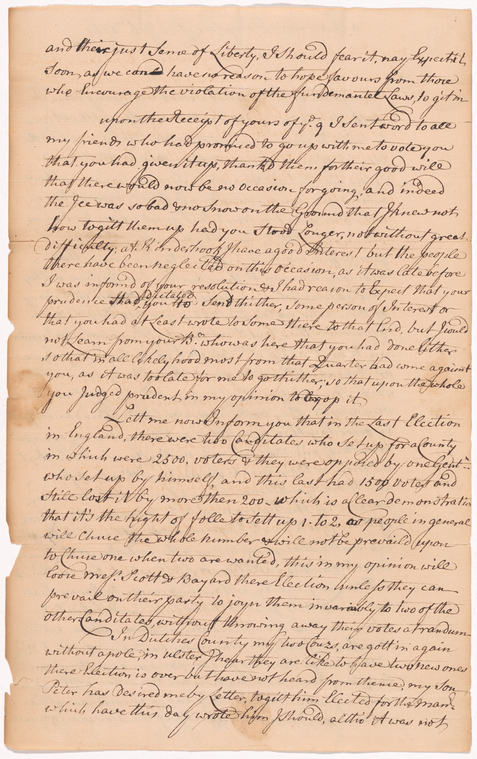 and their just Sense of Liberty, I should fear it, nay Expect it,
Soon, as we can have no reason to hope favours from those
who Encourage the violation of the fundemantel Laws, to git in
upon the Receipt of yours of ye 9 I Sent word to all
my friends who had promised to go up with me to vote you
that you had given it up, thankd them for their good will
that there would now be no occasion for going, and indeed
the Jce was so bad & no Snow on the Ground that I knew not
how to gitt them up had you Stood Longer, not without great
Difficulty, at Kinderhook I have a good Interest but the people
there have been neglected on this occasion, as it was late before
I was informd of your resolution & I had reason to Expect that your
prudence had dictated you to Send thither, Some person of Interest or
that you had at least wrote to Some there to that End, but I could
not learn from your Br. who was here that you had done Either
so that in all likelyhood most from that Quarter had come against
you, as it was too late for me to go thither, so that upon the whole
you Judged prudent in my opinion to give it
Lett me now Inform you that in the Last Election
in England, there were two Canditates who Set up for a County
in which were 2500. voters & they were oposed by one Gentn.
who Set up by himself, and this last had 1500 voters and
Still Lost it by more then 200. which is a Clear demonstration
that it's the hight of folle to Sett up 1 to 2, as people in general
will Chuse the whole number & will not be prevaild upon
to Chuse one when two are wanted, this in my opinion will
loose Messrs. Scott & Bayard there Election unless they can
prevail on their party to joyn them invariably to two of the
other Canditates, without throwing away their votes at randum
In Dutches County my two Couz. are gott in again
without a pole, in ulster I hear they are like to have two new ones
there Election is over but have not heard from thence. my Son
Peter has desired me by Letter, to gitt him Elected for the Manr.
which have this day wrote him I should, altho it was not